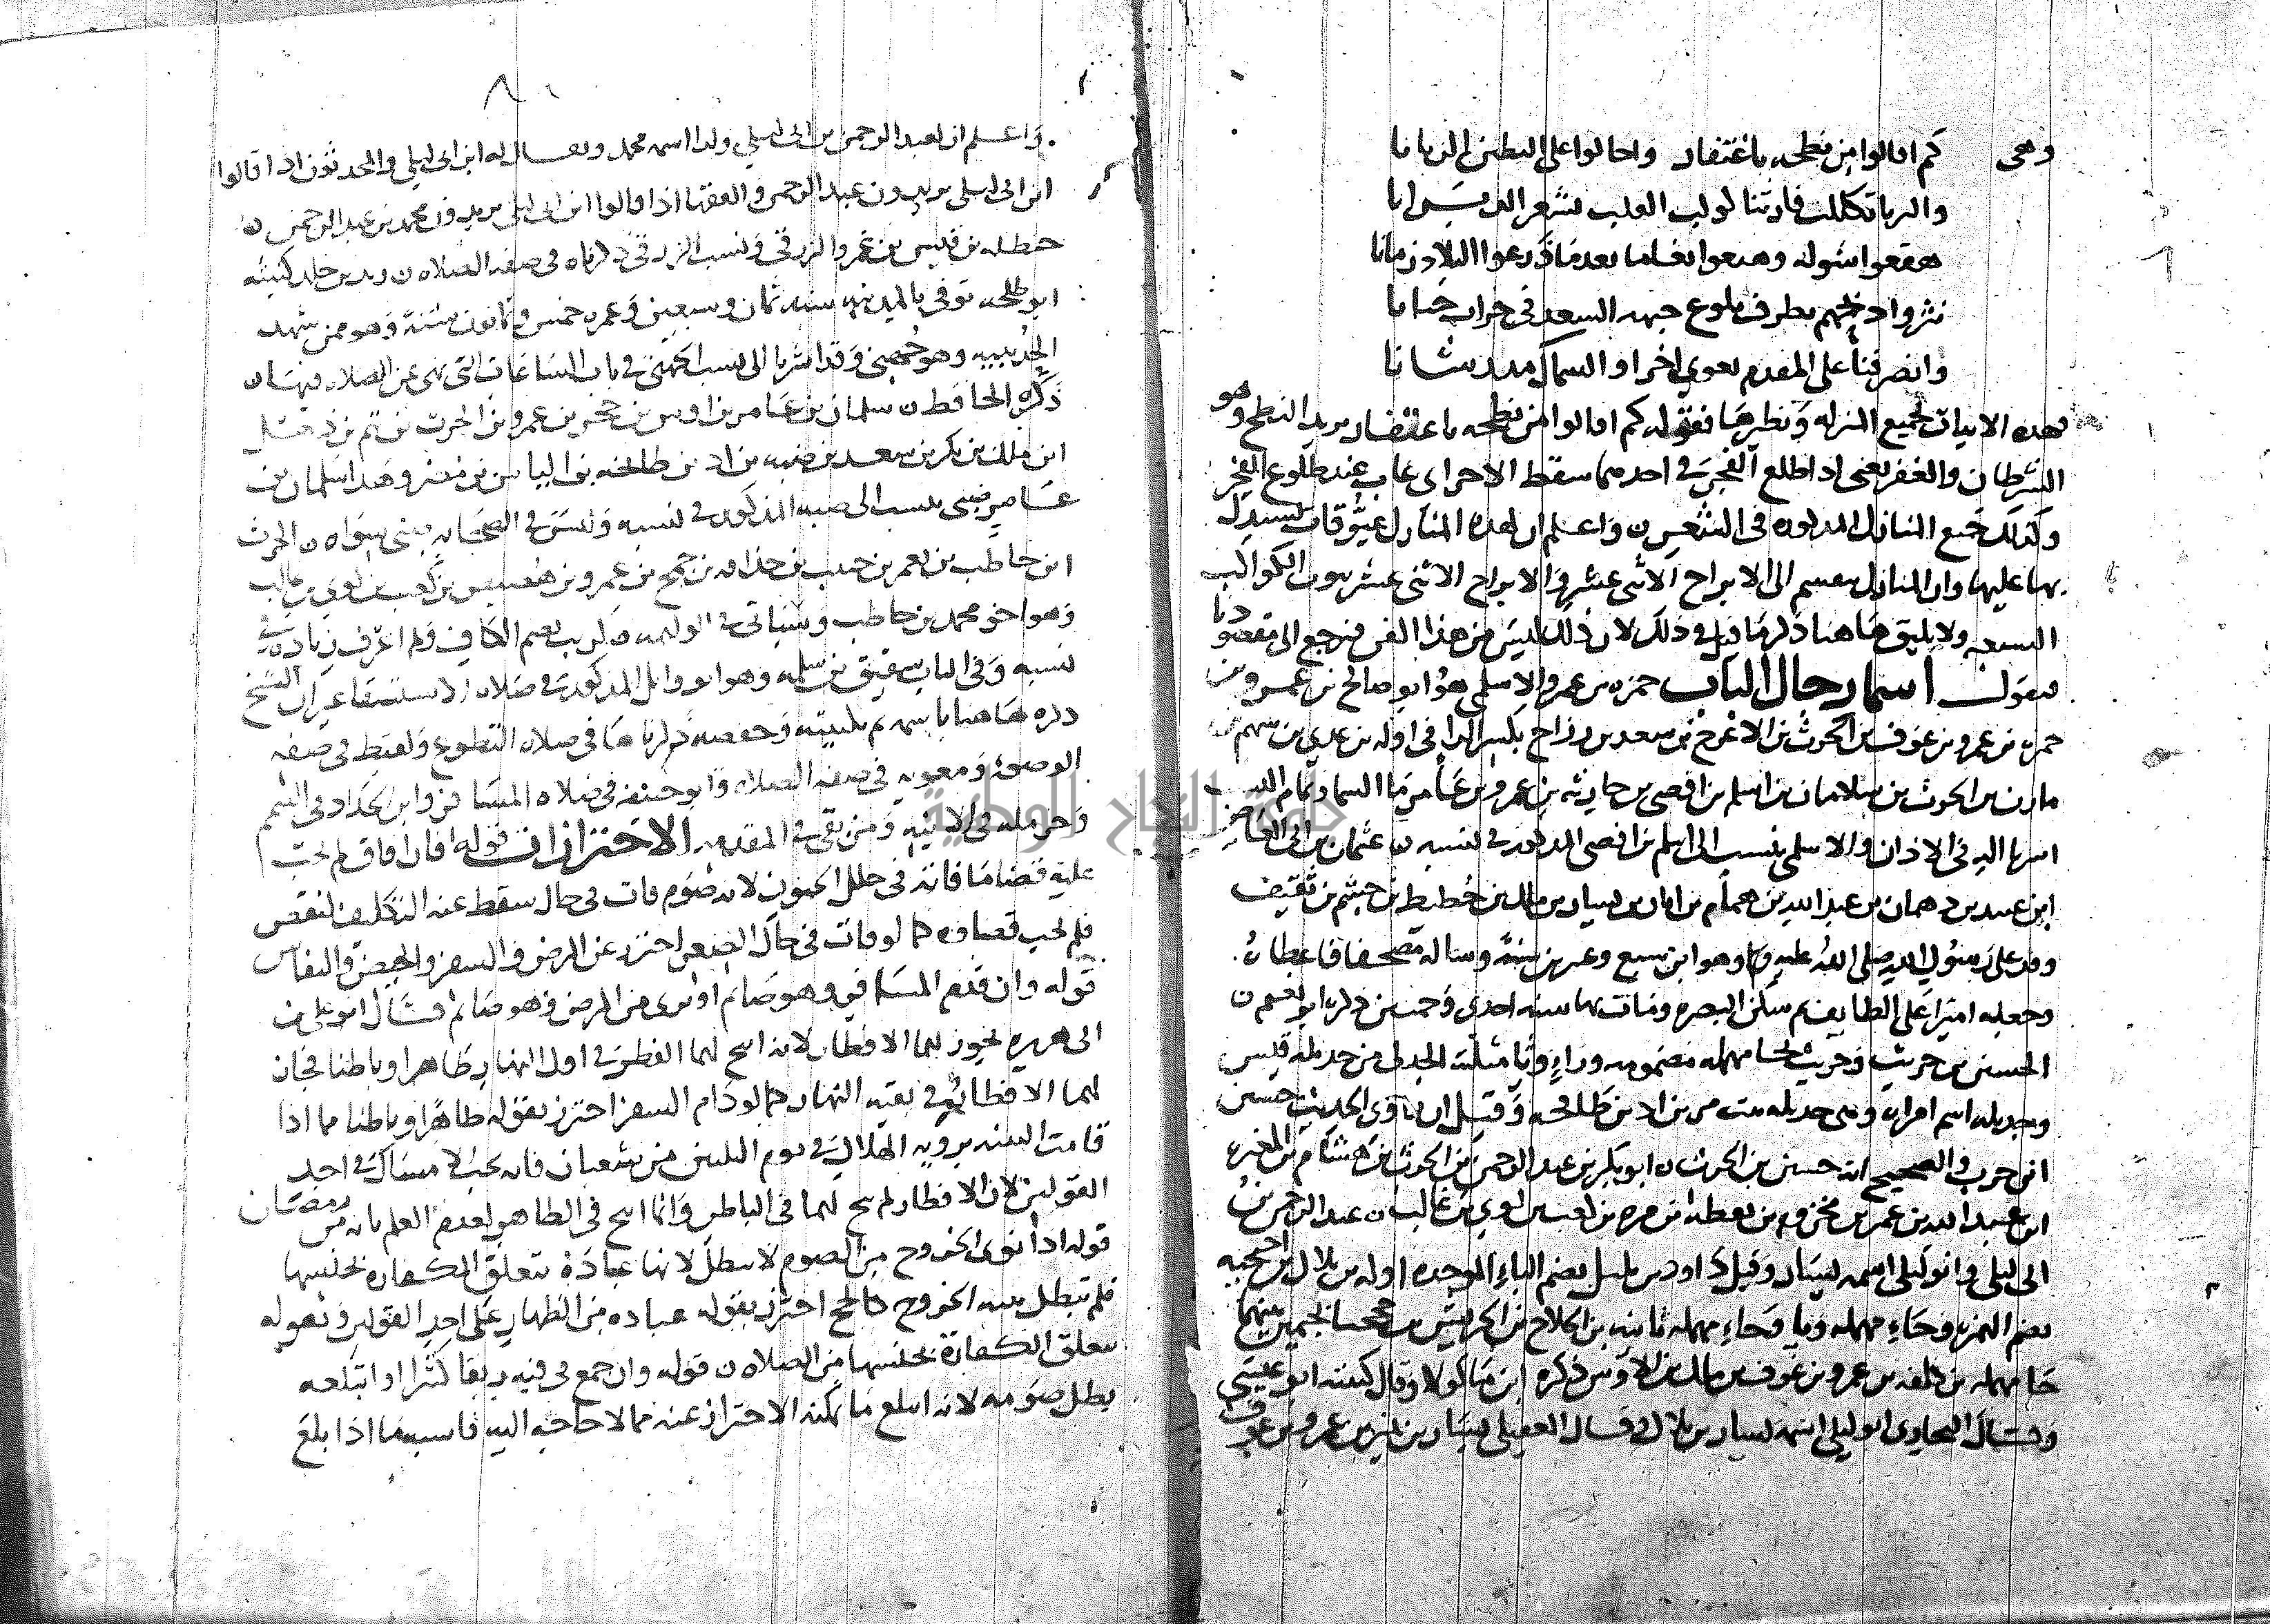 وهى كم اقالوا من نطحه باغتفار واحالوا على البطين الزبانا
والثريا تكللت فارتنا لولب القلب لشعر الدبران
هقعوا شوله وهنعوا نعاما بعدما ذرعوا البلاد زمانا
نثروا ذبحهم بطرف بلوع جبهه السعد فى خرات خبانا
وانصرفنا على المقدم بعوى اخرا والسماك مد رشانا
فهذه الابيات لجميع المنزله ونظيرها فقوله كم اقالوا من نطحه باغتفار يريد النطح وهو
الشرطان والغفر يعنى اذا طلع الفجر فى احدهما سقط الاخر اى غاب عند طلوع الفجر
وكذلك جميع المنازل المذكوره فى الشعر ن واعلم ان لهذه المنازل عيوقات يستدل
بها عليها وان المنازل تنقسم الى الابراج الاثنى عشر والابراج الاثنى عشر بيوت الكواكب
السبعه ولا يليق هاهنا ذكر ما قيل فى ذلك لان ذلك ليس من هذا الفن فنرجع الى مقصودنا
فنقول اسما رجال الباب حمزه بن عمرو الاسلمى هو ابو صالح بن عمرو بن
حمزه بن عمرو بن عوف بن الحرث بن الاعرج بن سعد بن رزاح بكسر الرا فى اوله بن عدى بن سهم بن
مازن بن الحرث بن سلامان بن اسلم بن افصى بن حارثه بن عمرو بن عامر ما السما وتمام النسب
اشرنا اليه فى الاذان والاسلمى ينسب الى اسلم بن افصى المذكور فى نسبه ن عثمان بن ابى العاص
ابن عبيد بن دهمان بن عبد الله بن همام بن ابان بن يسار بن مالك بن حطيط بن جشم بن ثقيف
وفد على رسول الله صلى الله عليه وهو ابن سبع وعشرين سنة وساله مصحفا فاعطاه
وجعله اميرا على الطايف ثم سكن البصره ومات بها سنه احدى وخمسين ذكره ابو نعيم ن
الحسين بن حريث وحريث بحا مهمله مضمومه وراء وثا مثلثه الجدلى من جديله قيس
وجديله اسم امراه وهى جديله بنت مر بن اد بن طابخه وقيل ان راوى الحديث حسين
ابن حرب والصحيح انه حسين بن الحرث ن ابو بكر بن عبد الرحمن بن الحرث بن هشام بن المغيره
ابن عبد الله بن عمر بن مخزوم بن يقظه بن مره بن كعب بن لوى بن غالب ن عبد الرحمن بن
ابى ليلى وابو ليلى اسمه يسار وقيل داود بن بليل بضم الباء الموحده اوله بن بلال بن احيحه
بضم الهمزه وحاء مهمله ويا وحاء مهمله ثانيه بن الجلاح بن الحريش بن جحجبا بجيمين بينهما
حا مهمله بن كلفه بن عمرو بن عوف بن مالك بن الاوس ذكره ابن ماكولا وقال كنيته ابو عيسى
وقال البخارى ابو ليلى اسمه يسار بن بلال وقال العقيلى يسار بن نمير بن عمرو بن عوف
واعلم ان لعبد الرحمن بن ابى ليلى ولدا اسمه محمد ويقال له ابن ابى ليلى والمحدثون اذا قالوا
ابن ابى ليلى يريدون عبد الرحمن والفقها اذا قالوا ابن ابى ليلى يريدون محمد بن عبد الرحمن ن
حنظله بن قيس بن عمرو الزرقى ونسب الزرقى ذكرناه فى صفه الصلاه ن زيد بن خلد كنيته
ابو طلحه توفى بالمدينه سنه ثمان وسبعين وعمره خمس وثمانون سنة وهو ممن شهد
الحديبيه وهو جهينى وقد اشرنا الى نسب الجهنى فى باب الساعات التى نهى عن الصلاه فيها ن
ذكره الحافظ ن سلمان بن عامر بن اوس بن حجر بن عمرو بن الحرث بن تيم بن ذهل
ابن ملك بن بكر بن سعد بن ضبه بن اد بن طابخه بن الياس بن مضر وهذا سلمان بن
عامر ضبى ينسب الى ضبه المذكور فى نسبه وليس فى الصحابه ضبى سواه ن الحرث
ابن حاطب بن معمر بن حبيب بن حذافه بن جمح بن عمرو بن هصيص بن كعب بن لوى بن غالب
وهو اخو محمد بن حاطب وسياتى فى الوليمه ن كريب بضم الكاف ولم اعرف زياده فى
نسبه وفى الباب شقيق بن سلمه وهو ابو وايل المذكور فى صلاه الاستسقا غير ان الشيخ
ذكره هاهنا باسمه ثم بكنيته وحفصه ذكرناها فى صلاه التطوع ولقيط فى صفه
الوضوء ومعويه فى صفه الصلاه وابو حنيفه فى صلاه المسافر وابن الحداد فى التيمم
وحرمله فى الانيه ومن بقى فى المقدمه الاحترازات قوله فان افاق لم يجب
عليه قضا ما فاته فى حال الجنون لانه صوم فات فى حال سقط عنه التكليف لنقص
فلم يجب قضاوه كما لو فات فى حال الصغر احترز عن المرض والسفر والحيض والنفاس
قوله وان قدم المسافر وهو صايم او برى من المرض وهو صايم قال ابو على بن
ابى هريره يجوز لهما الافطار لانه ابيح لهما الفطر فى اول النهار ظاهرا وباطنا فجاز
لهما الافطار فى بقيه النهار كما لو دام السفر احترز بقوله ظاهرا وباطنا مما اذا
قامت البينه بروية الهلال فى يوم الثلثين من شعبان فانه يجب الامساك فى احد
القولين لان الافطار لم يبح لهما فى الباطن وانما ابيح فى الظاهر لعدم العلم بانه من رمضان
قوله اذا نوى الخروج من الصوم لا يبطل لانها عبادة تتعلق الكفاره بجنسها
فلم تبطل بنيه الخروج كالحج احترز بقوله عباده من الظهار على احد القولين وبقوله
تتعلق الكفارة بجنسها من الصلاه ن قوله وان جمع فى فيه ريقا كثيرا وابتلعه
بطل صومه لانه ابتلع ما يمكنه الاحتراز عنه مما لا حاجه اليه فاشبه ما اذا بلع
جامعة النجاح الوطنية